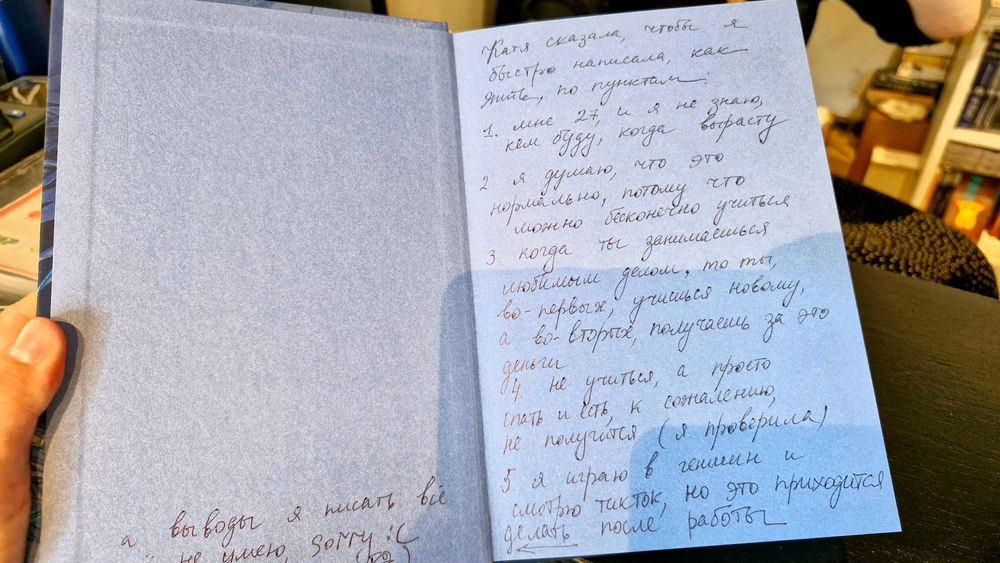 Катя сказала, чтобы я
быстро написала, как
жить, по пунктам:
1. мне 27, и я не знаю,
кем буду, когда вырасту
2 я думаю, что это
нормально, потому что
можно бесконечно учиться
3. когда ты занимаешься
любимым делом, то ты,
во-первых, учишься новому,
а во-вторых, получаешь за это
деньги
4. не учиться, а просто
спать и есть, к сожалению,
не получится (я проверила)
5 я играю в геншин и
смотрю тикток, но это приходится
делать после работы
а выводы я писать всё
не умею, sorry :(